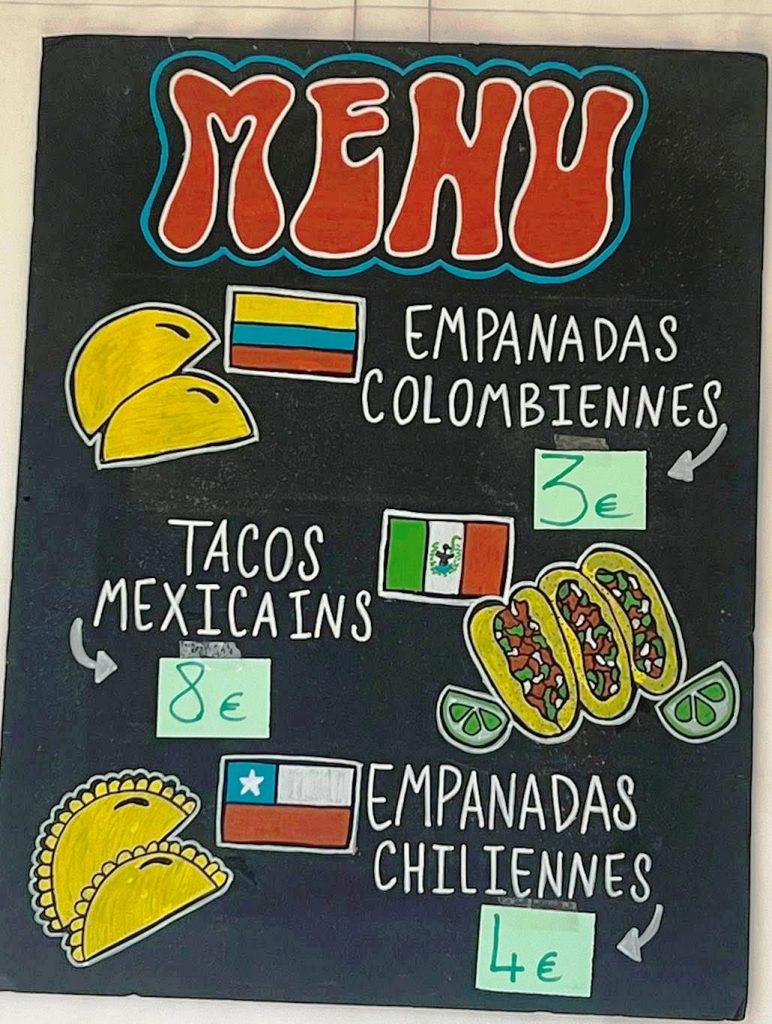 MENU
EMPANADAS
COLOMBIENNES
3€
TACOS
MEXICAINS
8€
EMPANADAS
CHILIENNES
4€